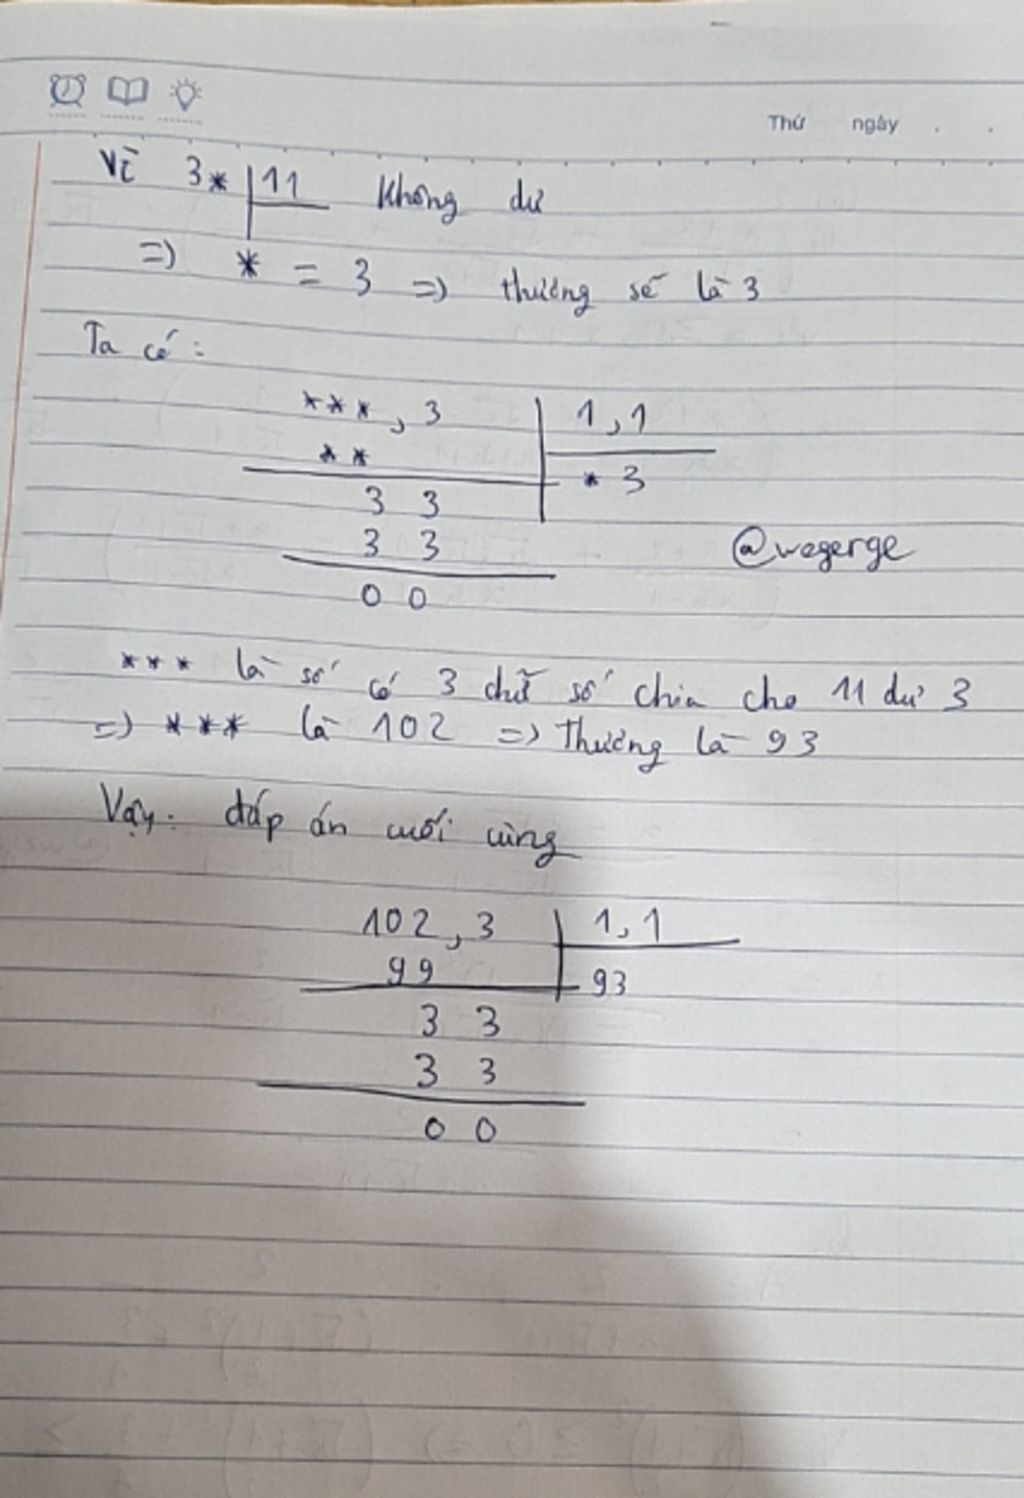 Thứ ngày . .
Vì 3* 11 không dư
=) * = 3 =) thương sẽ là 3
Ta có :
***,3 1,1
** *3
3 3
3 3 @wegerge
0 0
*** là số có 3 chữ số chia cho 11 dư 3
=) *** là 102 =) Thương là 93
Vậy: đáp án cuối cùng
102,3 1,1
99 93
3 3
3 3
0 0